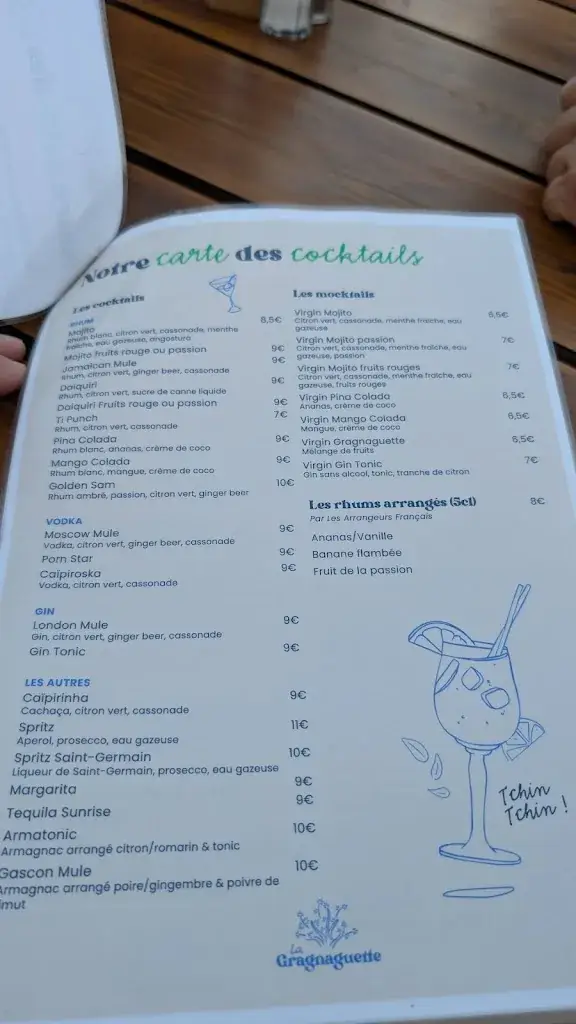 Notre carte des cocktails
Les cocktails
RHUM
Mojito 8,5€
Rhum blanc, citron vert, cassonade, menthe
fraîche, eau gazeuse, angostura
Mojito fruits rouge ou passion 9€
Jamaican Mule 9€
Rhum, citron vert, ginger beer, cassonade
Daiquiri 9€
Rhum, citron vert, sucre de canne liquide
Daiquiri Fruits rouge ou passion 9€
Ti Punch 7€
Rhum, citron vert, cassonade
Pina Colada 9€
Rhum blanc, ananas, crème de coco
Mango Colada 9€
Rhum blanc, mangue, crème de coco
Golden Sam 10€
Rhum ambré, passion, citron vert, ginger beer
VODKA
Moscow Mule 9€
Vodka, citron vert, ginger beer, cassonade
Porn Star 9€
Caïpiroska 9€
Vodka, citron vert, cassonade
GIN
London Mule 9€
Gin, citron vert, ginger beer, cassonade
Gin Tonic 9€
LES AUTRES
Caïpirinha 9€
Cachaça, citron vert, cassonade
Spritz 11€
Aperol, prosecco, eau gazeuse
Spritz Saint-Germain 10€
Liqueur de Saint-Germain, prosecco, eau gazeuse
Margarita 9€
Tequila Sunrise 9€
Armatonic 10€
Armagnac arrangé citron/romarin & tonic
Gascon Mule 10€
Armagnac arrangé poire/gingembre & poivre de
imut
Les mocktails
Virgin Mojito 6,5€
Citron vert, cassonade, menthe fraîche, eau
gazeuse
Virgin Mojito passion 7€
Citron vert, cassonade, menthe fraîche, eau
gazeuse, passion
Virgin Mojito fruits rouges 7€
Citron vert, cassonade, menthe fraîche, eau
gazeuse, fruits rouges
Virgin Pina Colada 6,5€
Ananas, crème de coco
Virgin Mango Colada 6,5€
Mangue, crème de coco
Virgin Gragnaguette 6,5€
Mélange de fruits
Virgin Gin Tonic 7€
Gin sans alcool, tonic, tranche de citron
Les rhums arrangés (5cl) 8€
Par Les Arrangeurs Français
Ananas/Vanille
Banane flambée
Fruit de la passion
Tchin
Tchin !
La
Gragnaguette